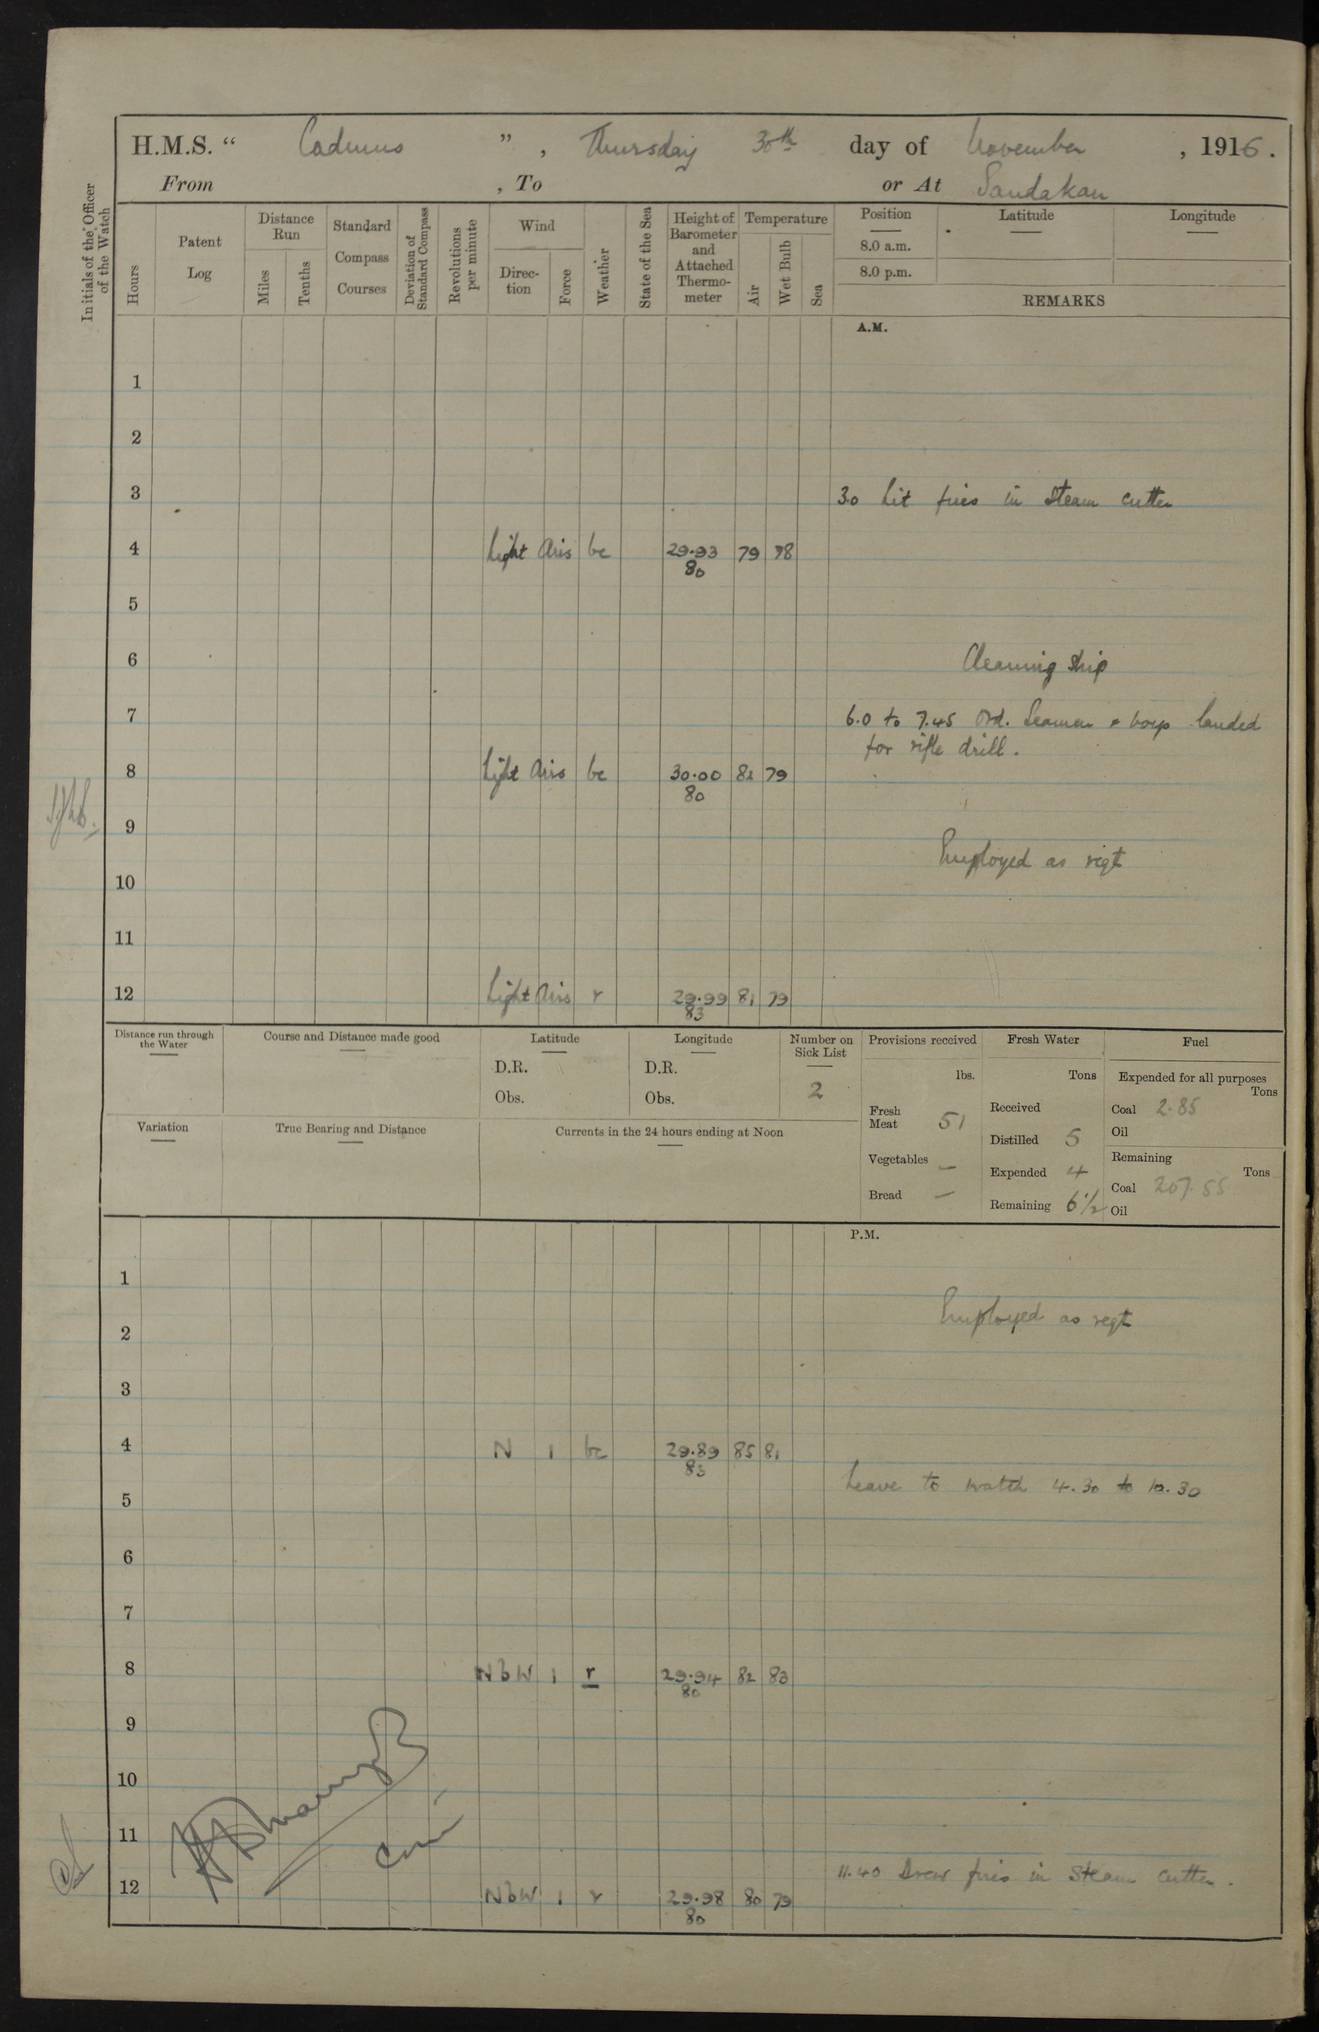 H.M.S. “ Cadmus ” , Thursday 30th day of November , 1916.
From , To or At Sandakan
Initials of the Officer of the Watch
Hours
Patent Log
Distance Run
Miles
Tenths
Standard Compass Courses
Deviation of Standard Compass
Revolutions per minute
Wind
Direc-tion
Force
Weather
State of the Sea
Height of Barometer and Attached Thermo-meter
Temperature
Air
Wet Bulb
Sea
Position
8.0 a.m.
8.0 p.m.
Latitude
Longitude
REMARKS
A.M.
1
2
3 3.0 Lit fires in Steam cutter
4 Light Airs bc 29.93 79 78
80
5
6 Cleaning Ship
7 6.0 to 7.45 Ord. Seamen & boys landed
for rifle drill.
8 Light Airs bc 30.00 82 79
80
9
Employed as reqt
10
11
12 Light Airs r 29.99 81 79
83
Distance run through the Water
Course and Distance made good
Latitude
D.R.
Obs.
Longitude
D.R.
Obs.
Number on Sick List
2
Provisions received
lbs.
Fresh Meat 51
Vegetables —
Bread —
Fresh Water
Tons
Received
Distilled 5
Expended 4
Remaining 6½
Fuel
Expended for all purposes
Tons
Coal 2.85
Oil
Remaining
Tons
Coal 207.55
Oil
Variation
True Bearing and Distance
Currents in the 24 hours ending at Noon
P.M.
1
Employed as reqt
2
3
4 N 1 bc 29.89 85 81
83
Leave to watch 4.30 to 10.30
5
6
7
8 NbW 1 r 29.94 82 80
80
9
10
11
11.40 Drew fires in Steam cutter.
12 NbW 1 r 29.98 80 79
80